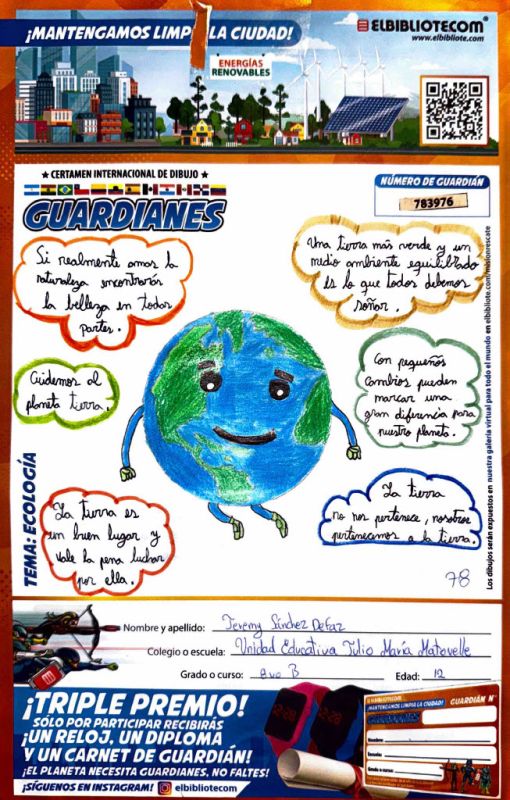 ¡MANTENGAMOS LIMPIA LA CIUDAD!
ELBIBLIOTECOM®
www.elbibliote.com
ENERGÍAS
RENOVABLES
★ CERTAMEN INTERNACIONAL DE DIBUJO ★
GUARDIANES
NÚMERO DE GUARDIÁN
783976
Si realmente amas la
naturaleza encontrarás
la belleza en todas
partes.
Una tierra más verde y un
medio ambiente equilibrado
es lo que todos debemos
soñar.
Cuidemos al
planeta tierra.
Con pequeños
cambios pueden
marcar una
gran diferencia para
nuestro planeta.
La tierra es
un buen lugar y
vale la pena luchar
por ella.
La tierra
no nos pertenece, nosotros
pertenecemos a la tierra.
78
TEMA: ECOLOGÍA
Los dibujos serán expuestos en nuestra galería virtual para todo el mundo en elbibliote.com/misionrescate
Nombre y apellido: Jeremy Sánchez Defaz
Colegio o escuela: Unidad Educativa Julio María Matovelle
Grado o curso: 8vo B Edad: 12
¡TRIPLE PREMIO!
SÓLO POR PARTICIPAR RECIBIRÁS
¡UN RELOJ, UN DIPLOMA
Y UN CARNET DE GUARDIÁN!
¡EL PLANETA NECESITA GUARDIANES. NO FALTES!
¡SÍGUENOS EN INSTAGRAM! elbibliotecom
¡MANTENGAMOS LIMPIA LA CIUDAD!
GUARDIÁN N°
GUARDIANES